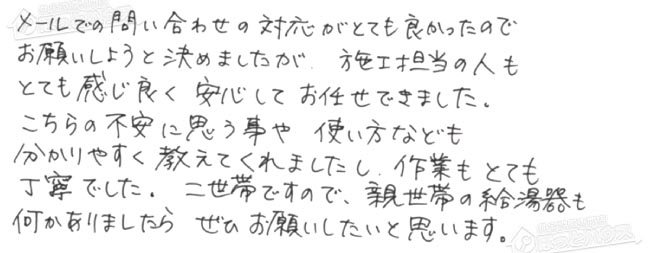 メールでの問い合わせの対応がとても良かったので
お願いしようと決めましたが、施工担当の人も
とても感じ良く 安心して お任せできました。
こちらの不安に思う事や 使い方なども
分かりやすく 教えてくれましたし、作業も とても
丁寧でした。 二世帯ですので、親世帯の給湯器も
何かありましたら ぜひ お願いしたいと思います。